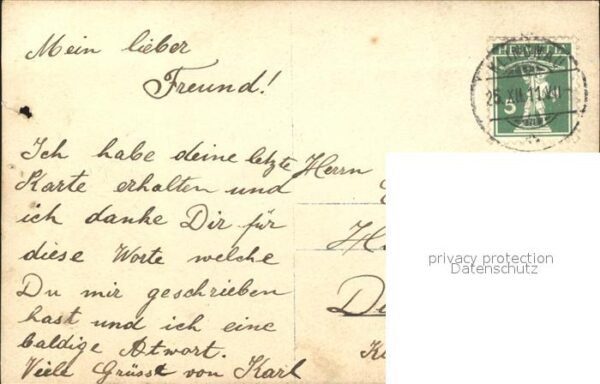 Mein lieber
Freund!
Ich habe deine letzte
Karte erhalten und
ich danke Dir für
diese Worte welche
Du mir geschrieben
hast und ich eine
baldige Atwort.
Viele Grüsst von Karl
Herrn
25.XII.11.VII
5
privacy protection
Datenschutz